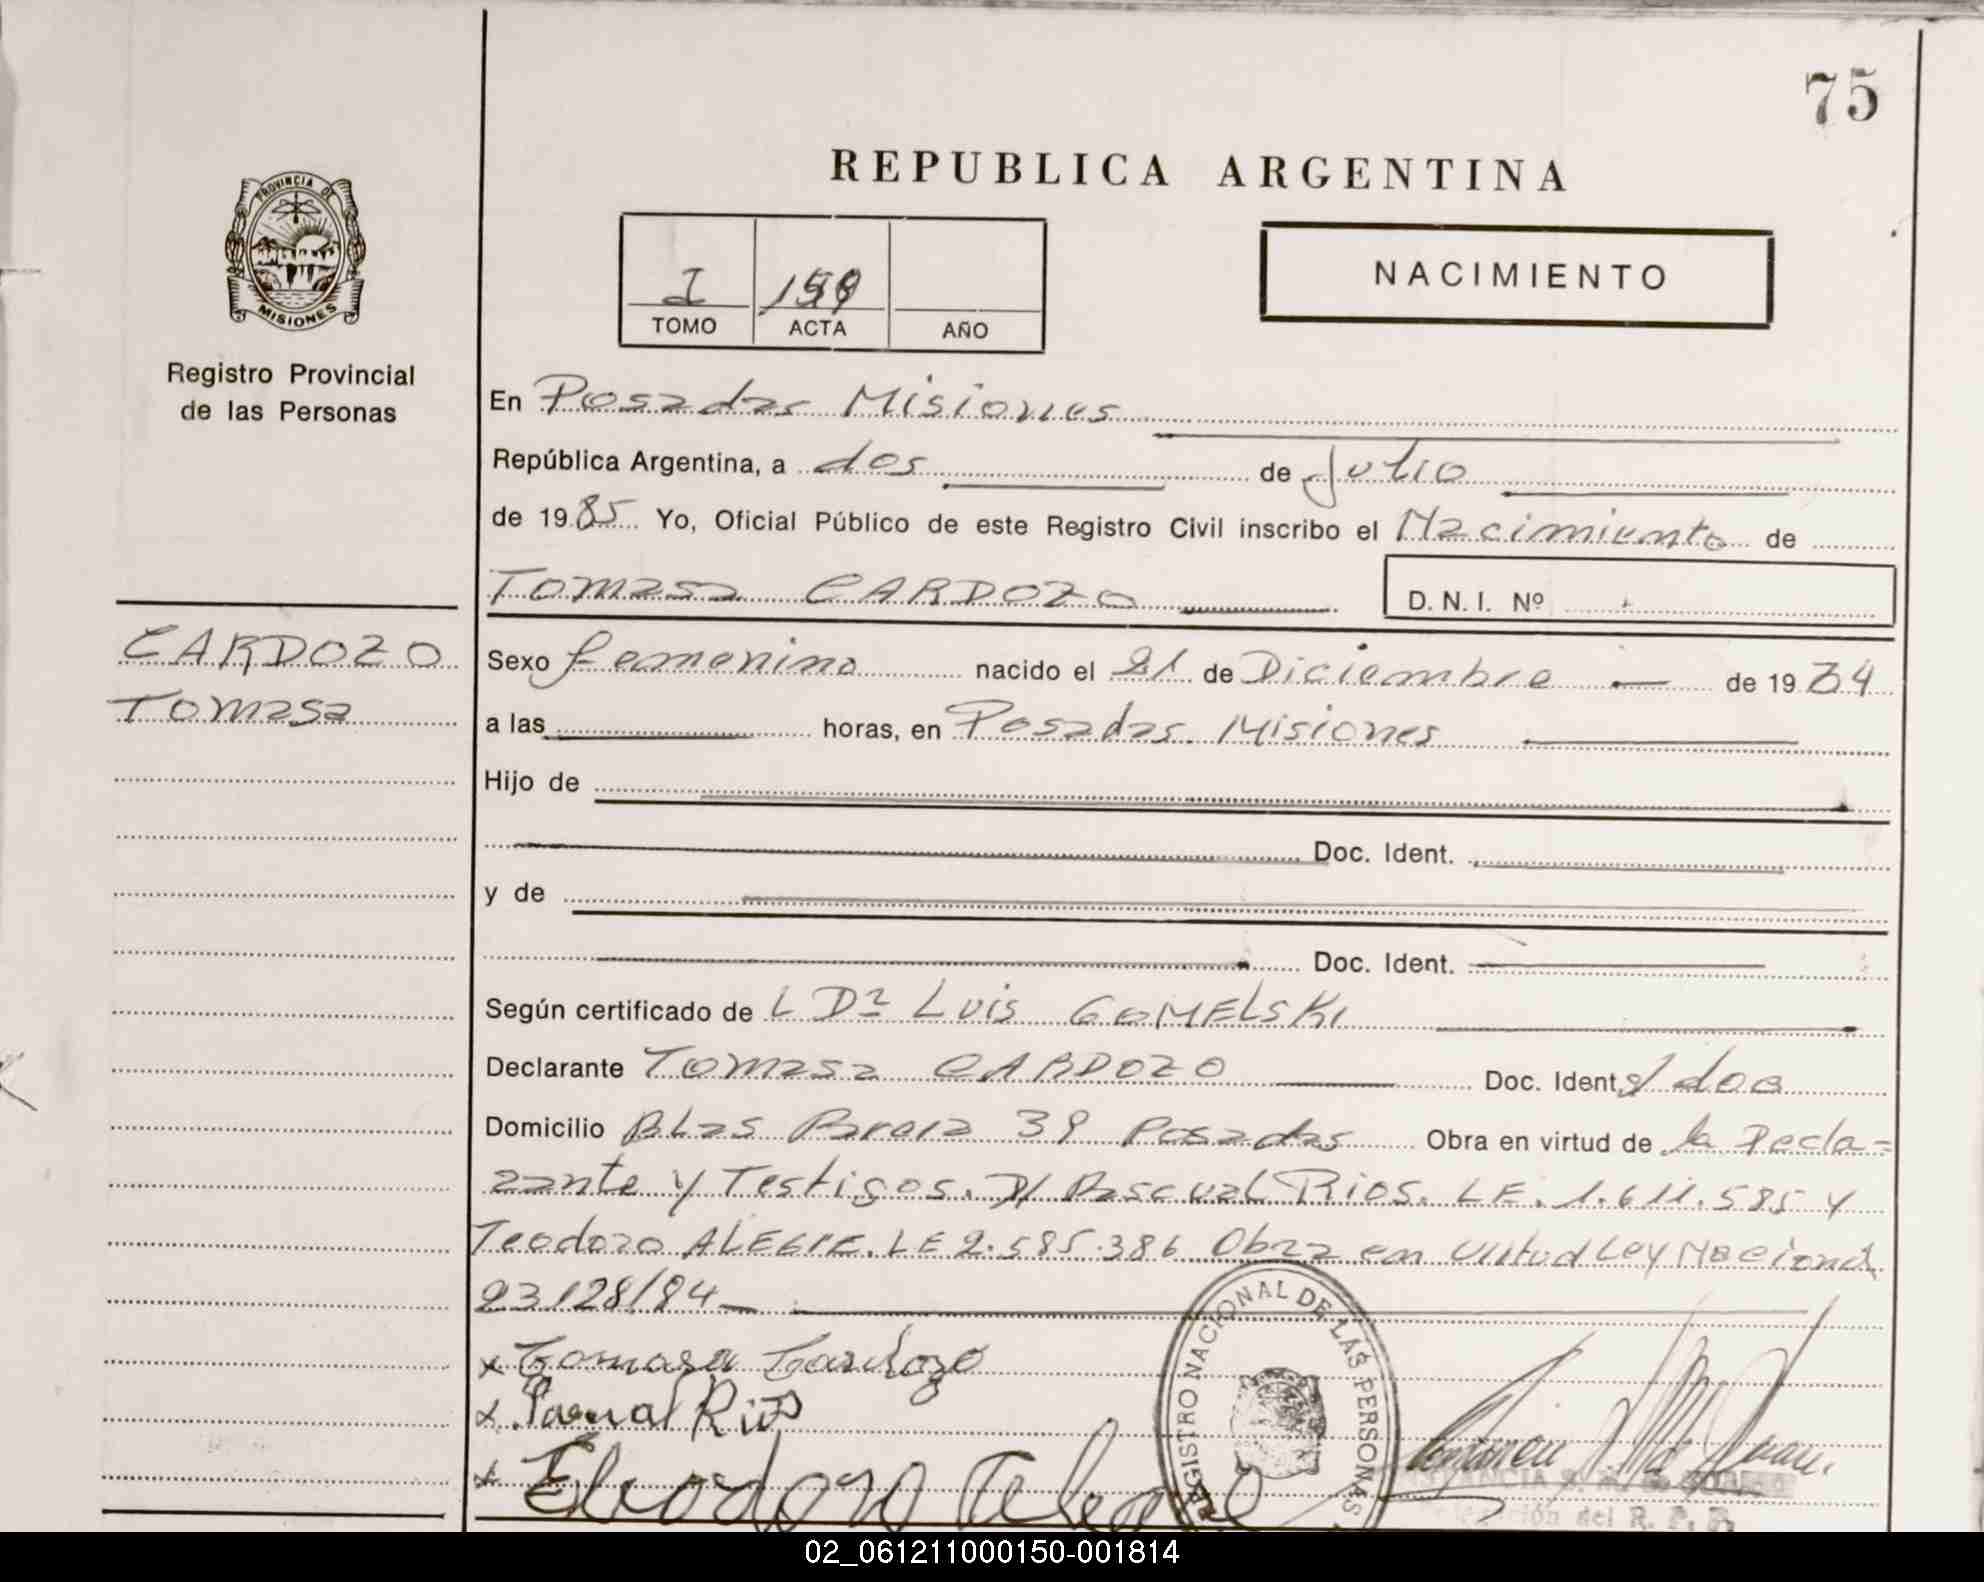 75
REPUBLICA ARGENTINA
PROVINCIA DE
MISIONES
Registro Provincial
de las Personas
I
TOMO ACTA AÑO
NACIMIENTO
En Posadas Misiones
República Argentina, a dos de Julio
de 1985 Yo, Oficial Público de este Registro Civil inscribo el Nacimiento de
Tomasa CARDOZO
D. N. I. Nº
CARDOZO
Tomasa
Sexo femenino nacido el 21 de Diciembre de 1934
a las horas, en Posadas Misiones
Hijo de
Doc. Ident.
y de
Doc. Ident.
Según certificado de L Dr Luis GOMELSKI
Declarante Tomasa CARDOZO Doc. Ident. s/ doc
Domicilio Blas 39 Posadas Obra en virtud de la Decla=
rante y Testigos. D/ Pascual Rios. LE. 1.611.585 y
Teodoro ALEGRE. LE 2.585.386 Obra en virtud Ley Nacional
23128/84
x Tomasa Cardozo
x Pascual Rios
x
REGISTRO NACIONAL DE LAS PERSONAS
del R. P. P.
02_061211000150-001814